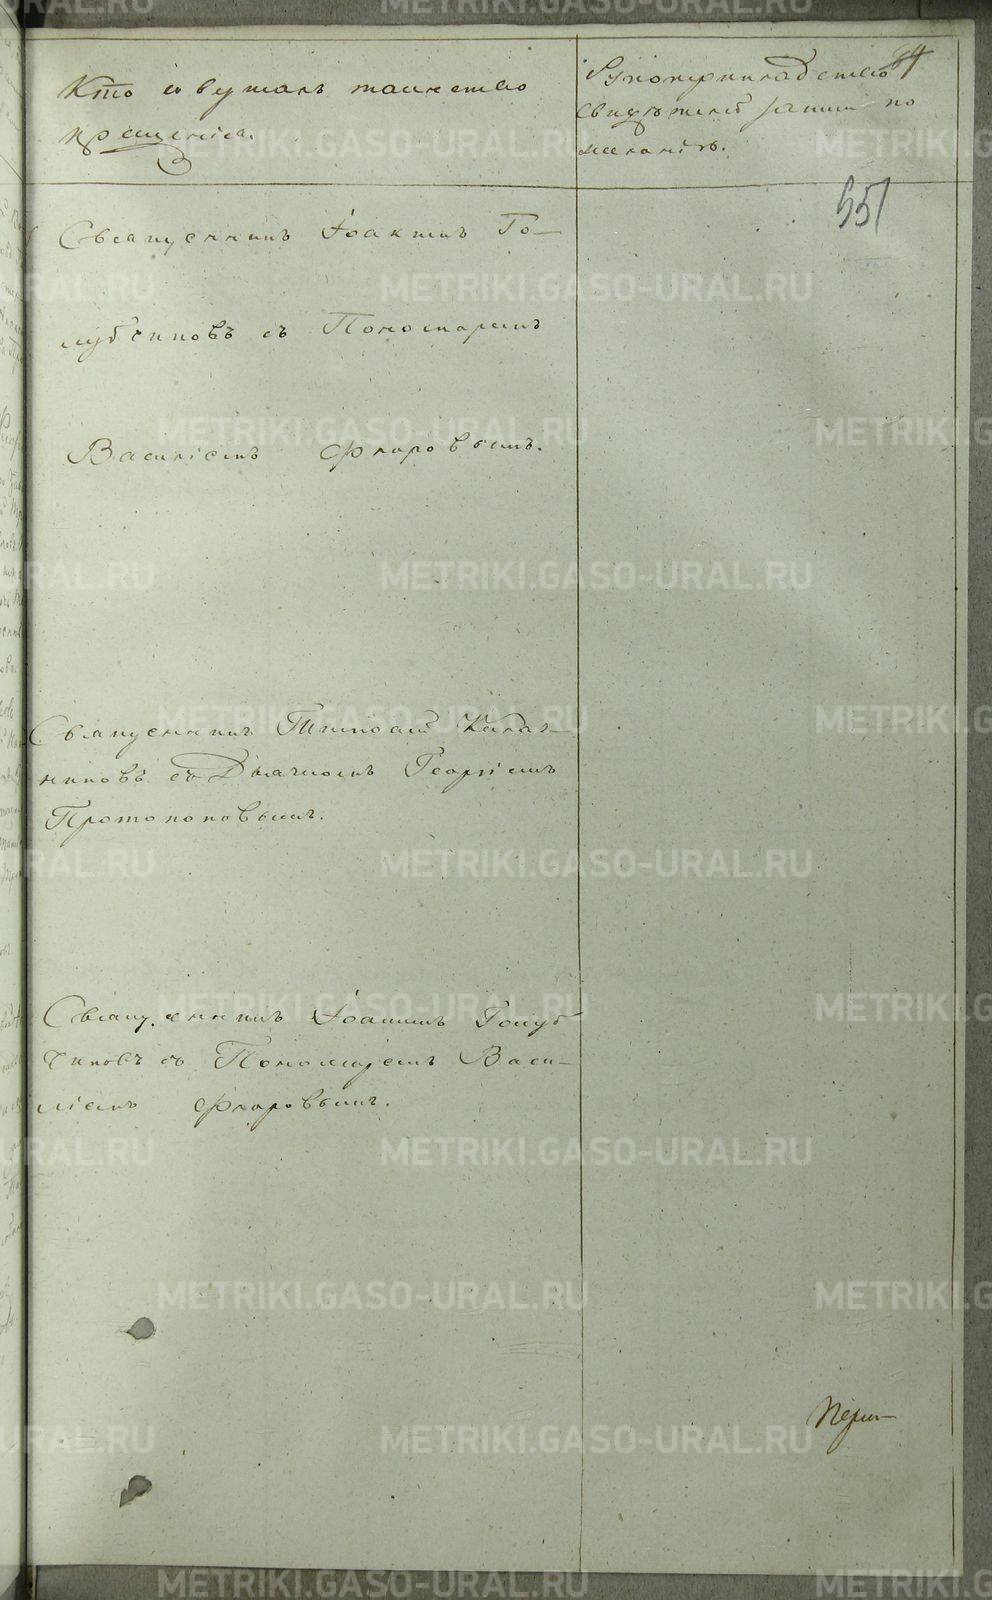 Кто совершалъ таинство
крещенія.
Рукоприкладство
свидѣтелей записи по
желанію.
84
551
Священникъ Іоакимъ Го-
лубчиковъ съ Пономаремъ
Василіемъ Флоровымъ.
Священникъ Тимофей Калаш-
никовъ съ Дьячкомъ Георгіемъ
Протопоповымъ.
Священникъ Іоакимъ Голуб
чиковъ съ Пономаремъ Васи-
ліемъ Флоровымъ.
METRIKI.GASO-URAL.RU